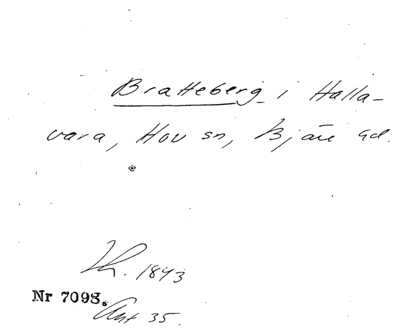 Bratteberg i Halla-
vara, Hov sn, Bjäre hd.
Th. 1843
Nr 7098.
Ant 35.